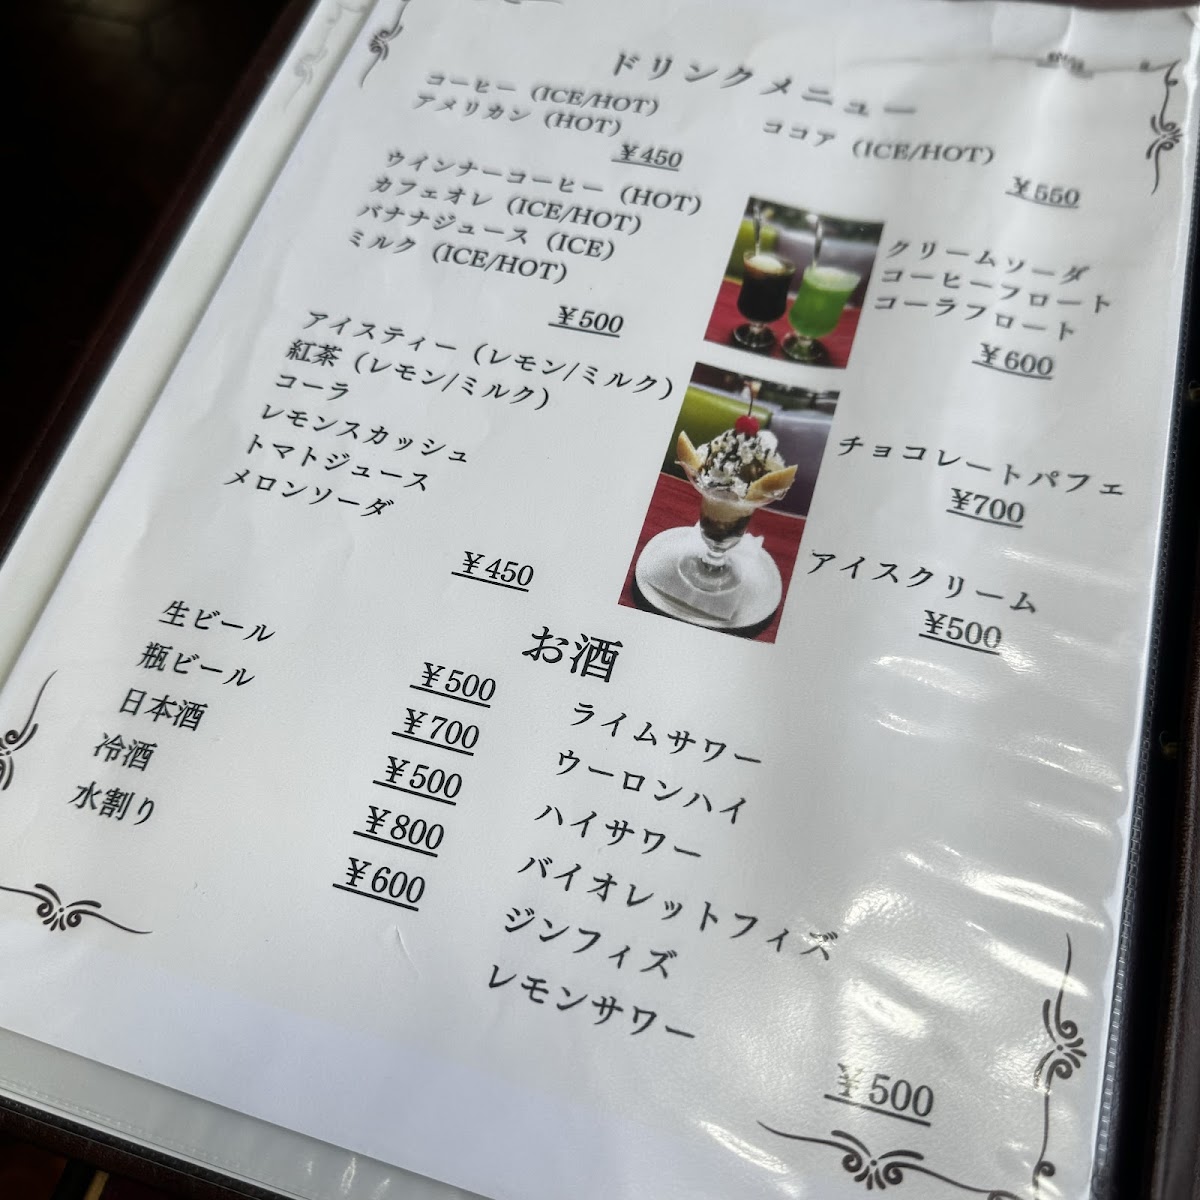 ドリンクメニュー
コーヒー (ICE/HOT)
アメリカン (HOT)
¥450
ウインナーコーヒー (HOT)
カフェオレ (ICE/HOT)
バナナジュース (ICE)
ミルク (ICE/HOT)
¥500
アイスティー (レモン/ミルク)
紅茶 (レモン/ミルク)
コーラ
レモンスカッシュ
トマトジュース
メロンソーダ
¥450
ココア (ICE/HOT)
¥550
クリームソーダ
コーヒーフロート
コーラフロート
¥600
チョコレートパフェ
¥700
アイスクリーム
¥500
お酒
生ビール ¥500
瓶ビール ¥700
日本酒 ¥500
冷酒 ¥800
水割り ¥600
ライムサワー
ウーロンハイ
ハイサワー
バイオレットフィズ
ジンフィズ
レモンサワー
¥500